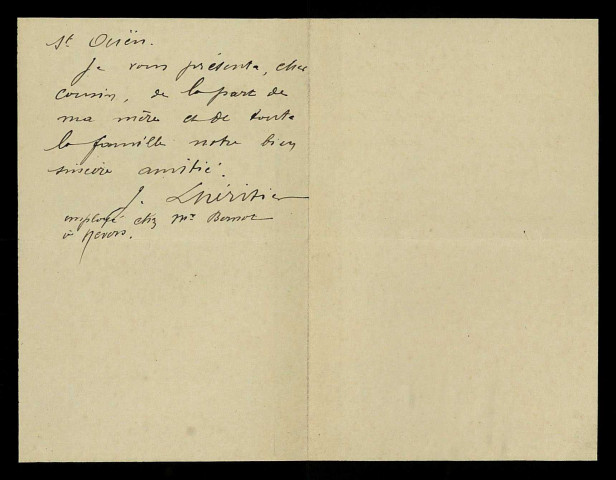 St Ouën.
Je vous présente, cher
cousin, de la part de
ma mère et de toute
la famille notre bien
sincère amitié.
J. Lhéritier
employé chez Mr
à Nevers.